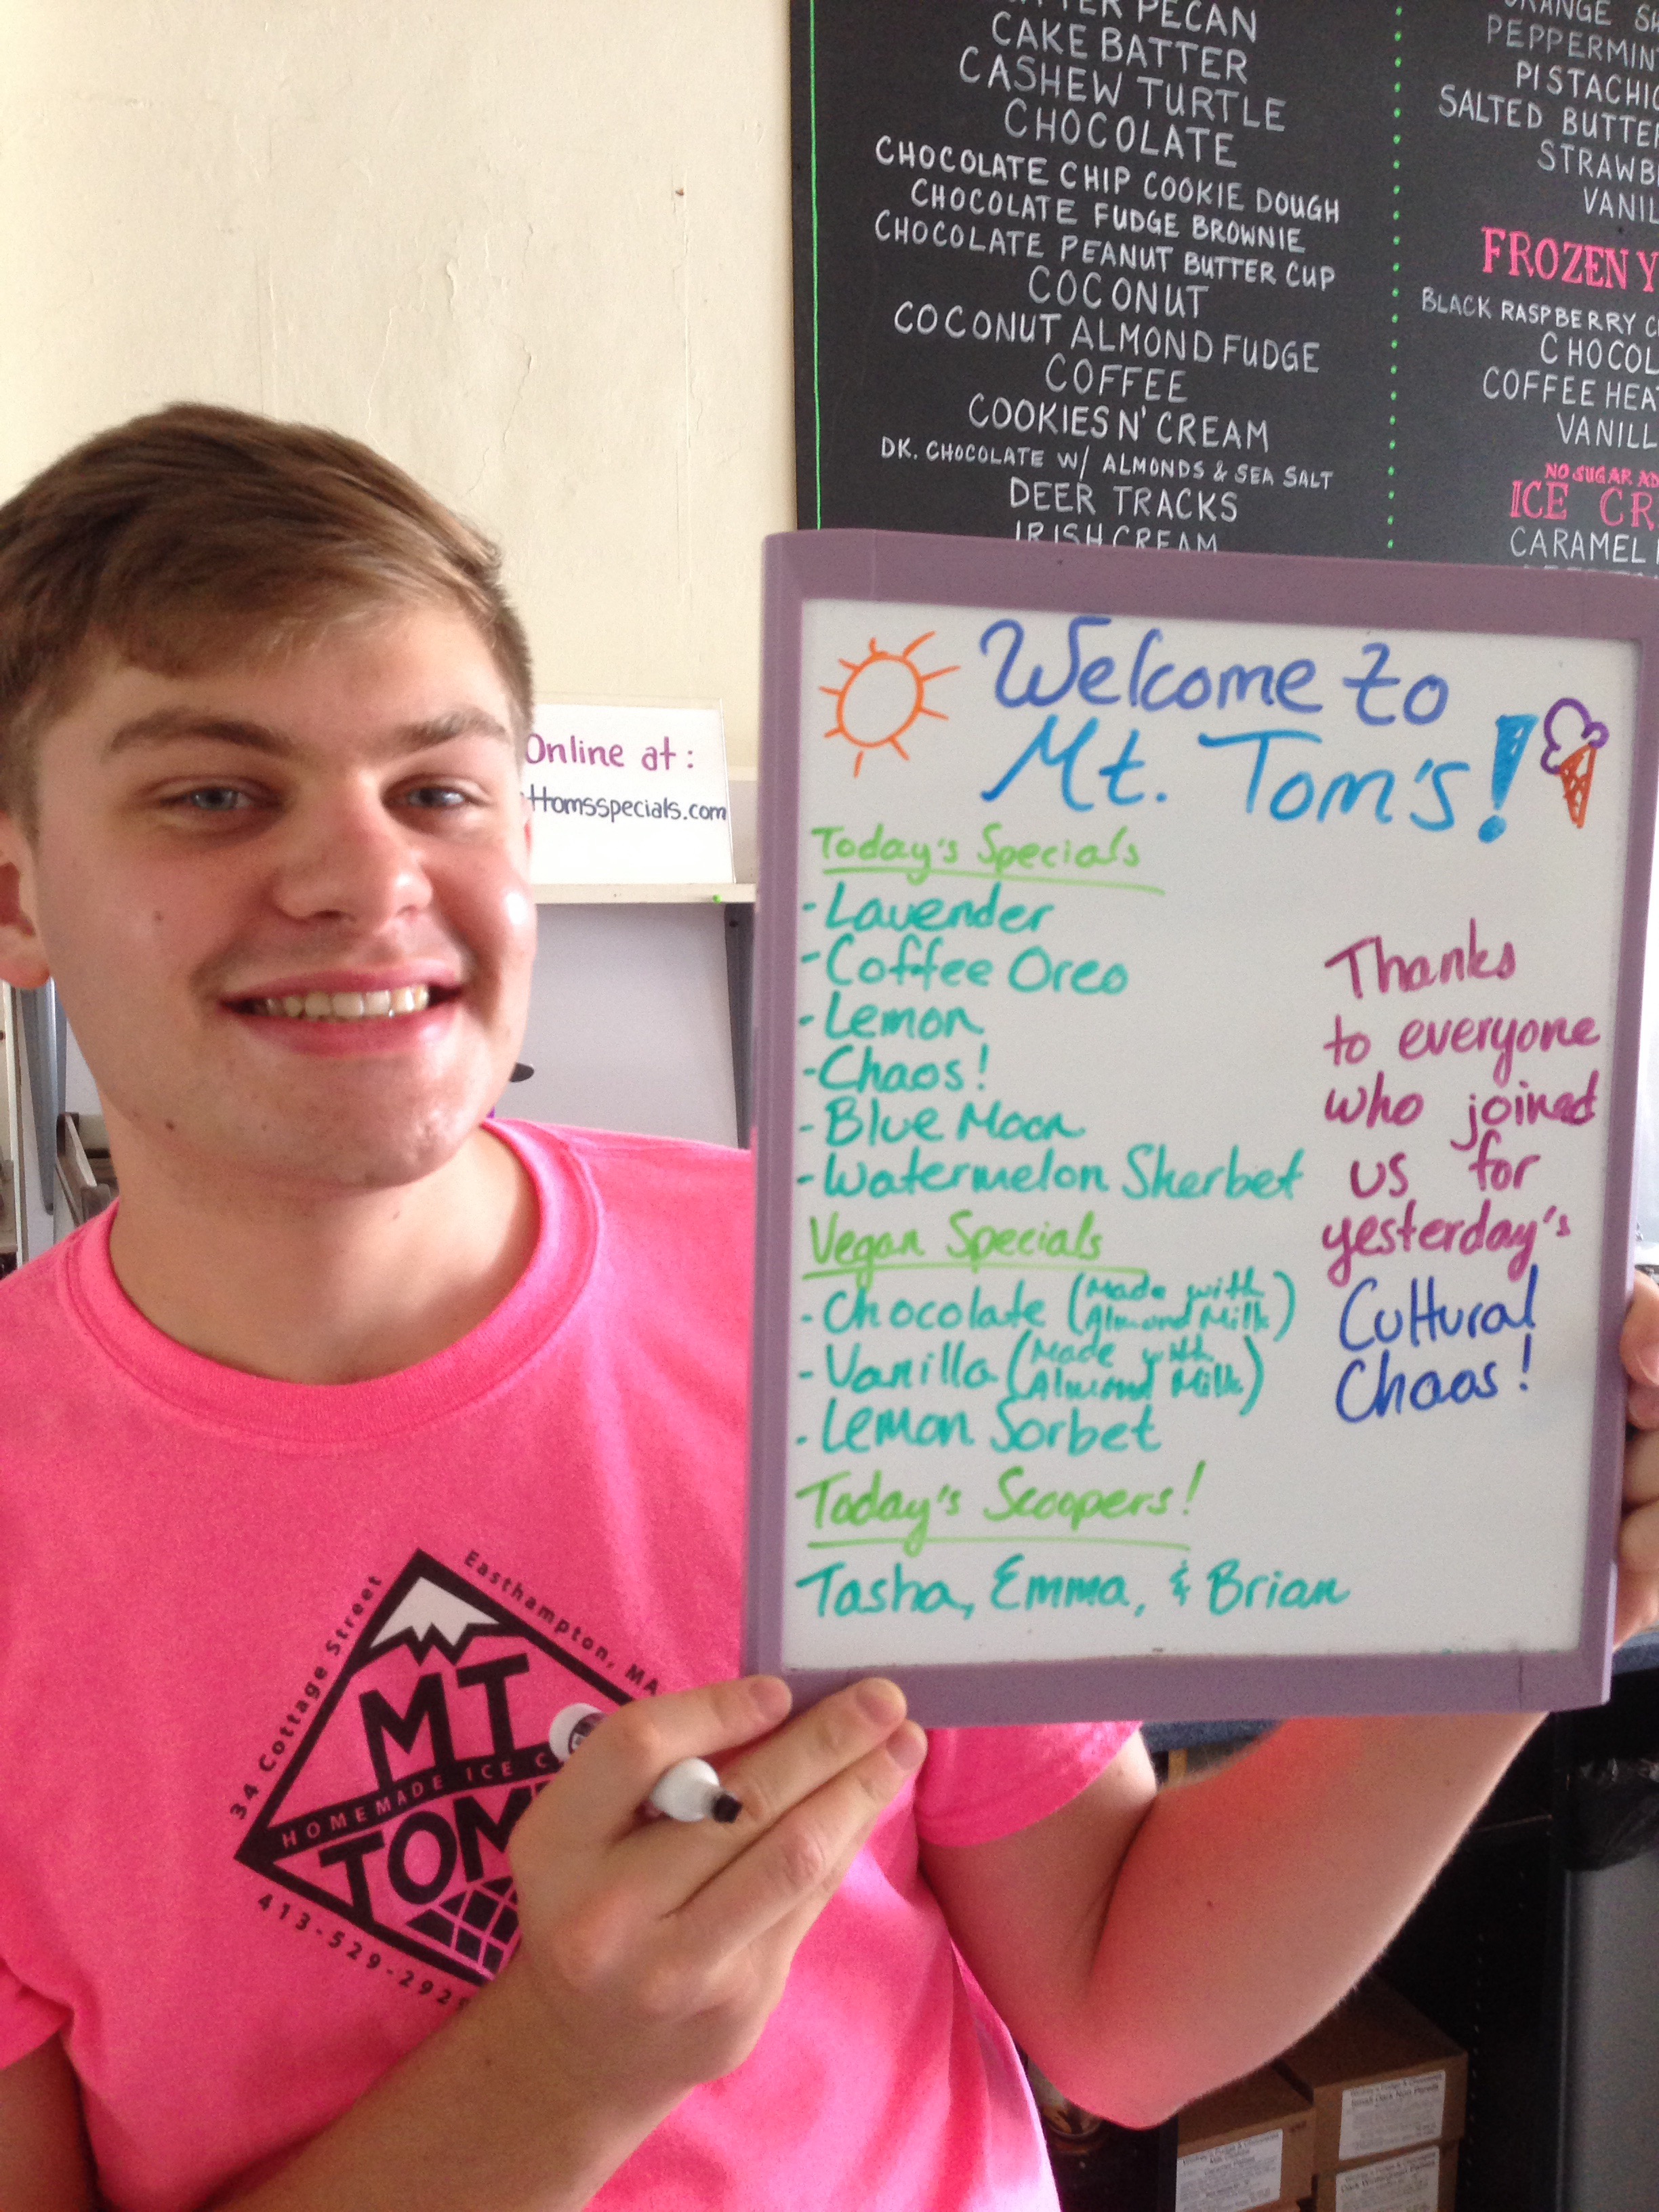 PECAN
CAKE BATTER
CASHEW TURTLE
CHOCOLATE
CHOCOLATE CHIP COOKIE DOUGH
CHOCOLATE FUDGE BROWNIE
CHOCOLATE PEANUT BUTTER CUP
COCONUT
COCONUT ALMOND FUDGE
COFFEE
COOKIES N' CREAM
DK. CHOCOLATE W/ ALMONDS & SEA SALT
DEER TRACKS
IRISH CREAM
PEPPERMIN
PISTACHIO
SALTED BUTTER
STRAWB
VANIL
FROZEN Y
BLACK RASPBERRY C
CHOCOL
COFFEE HEA
VANILL
NO SUGAR AD
ICE CR
CARAMEL
Online at:
ttomsspecials.com
Welcome to
Mt. Tom's!
Today's Specials
- Lavender
- Coffee Oreo
- Lemon
- Chaos!
- Blue Moon
- Watermelon Sherbet
Vegan Specials
- Chocolate (Made with Almond Milk)
- Vanilla (Made with Almond Milk)
- Lemon Sorbet
Today's Scoopers!
Tasha, Emma, & Brian
Thanks
to everyone
who joined
us for
yesterday's
Cultural
Chaos!
34 Cottage Street
Easthampton, MA
MT
HOMEMADE ICE C
TOM'
413-529-292